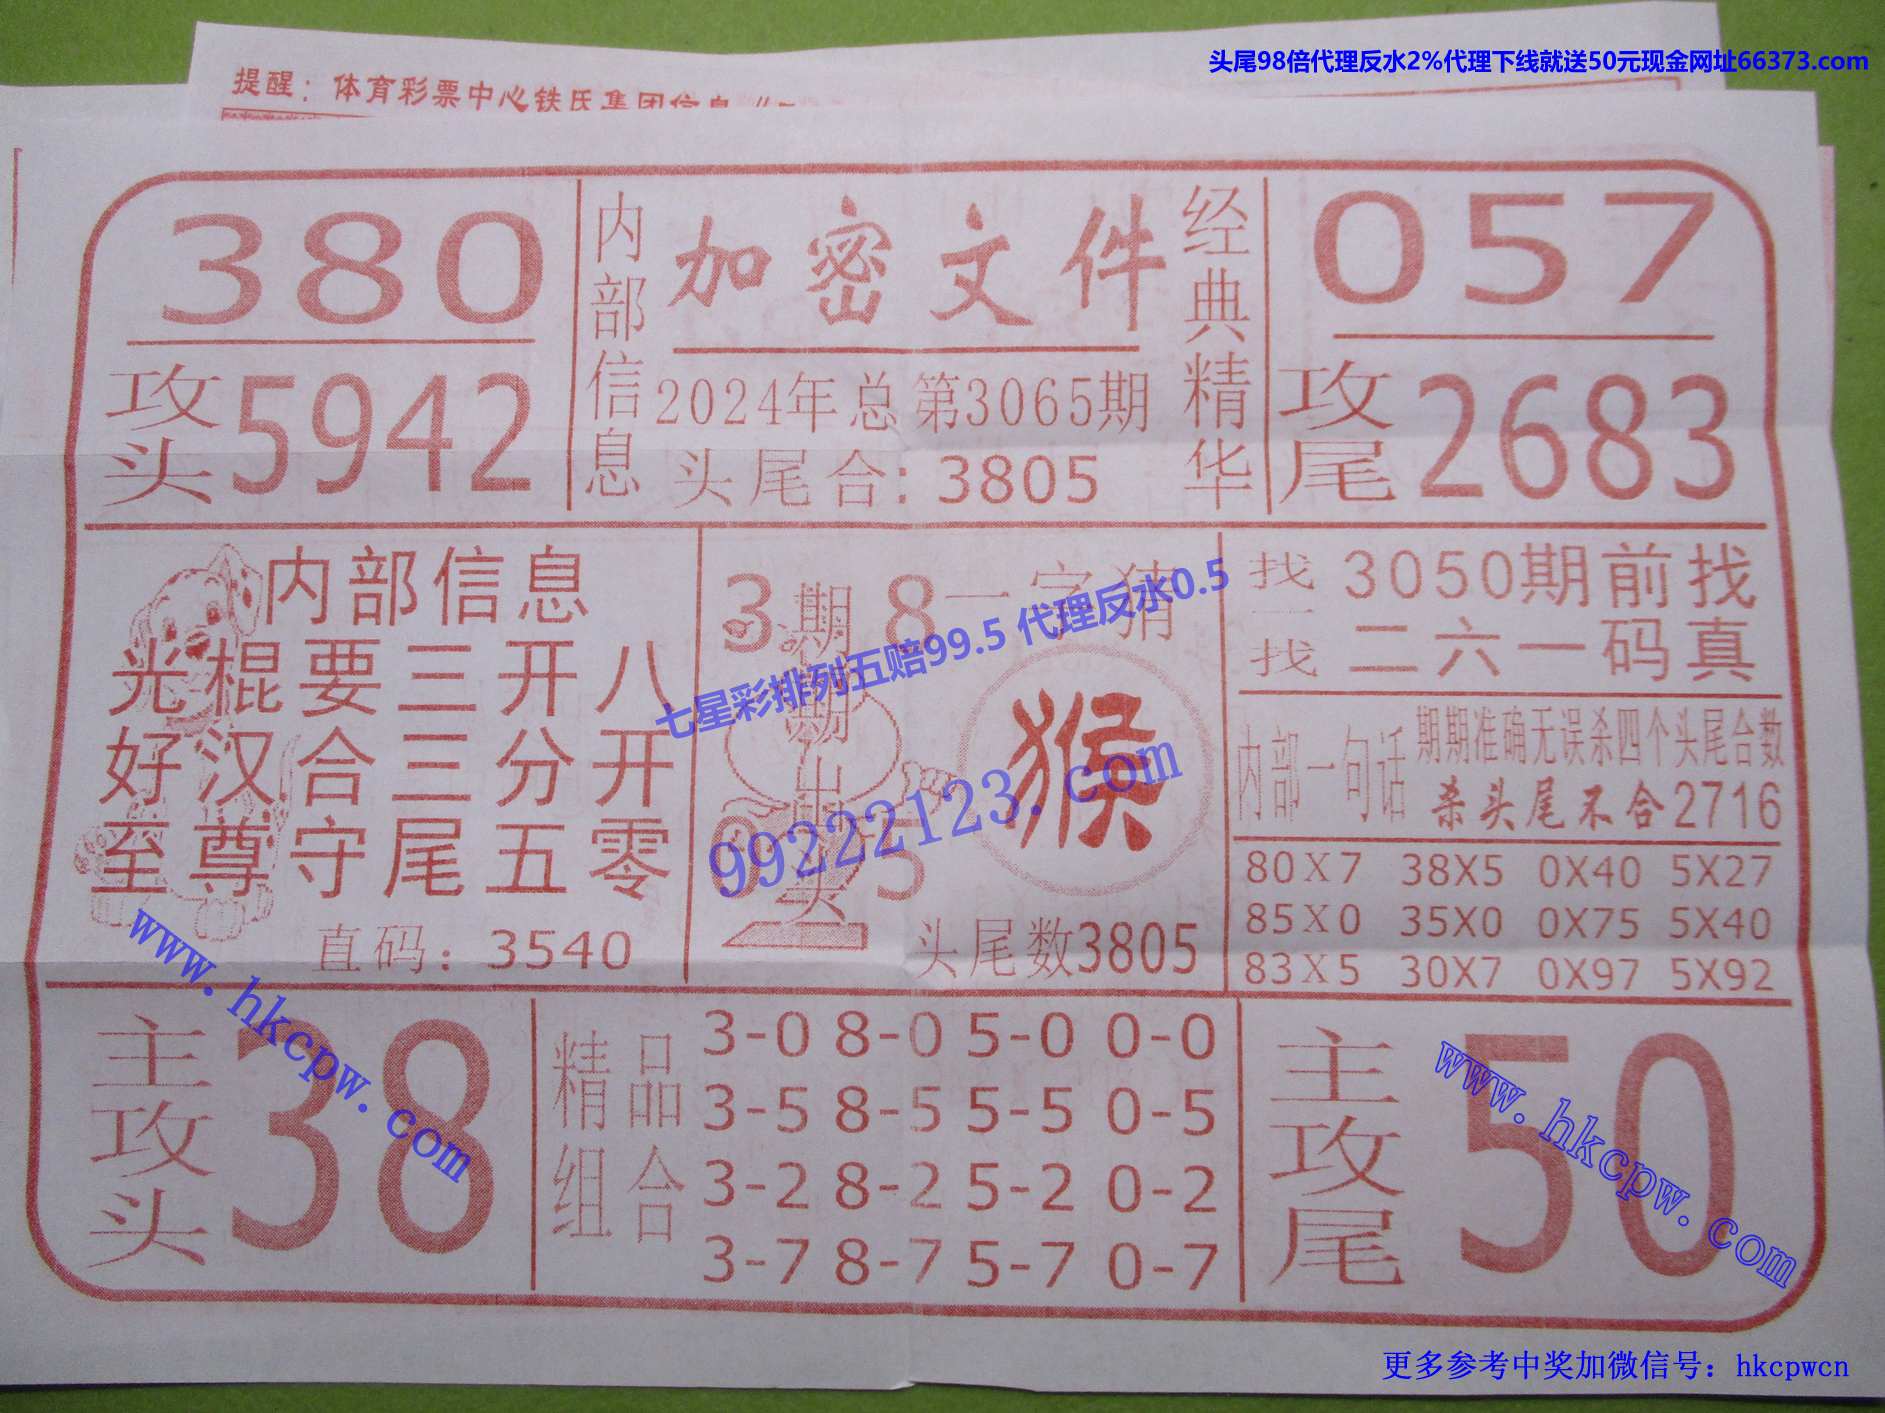 头尾98倍代理反水2%代理下线就送50元现金网址66373.com
提醒：体育彩票中心铁氏集团信息
380
攻头 5942
内部信息
加密文件
2024年总第3065期
头尾合: 3805
经典精华
057
攻尾 2683
内部信息
光棍要三开八
好汉合三分开
至尊守尾五零
直码: 3540
3 8
期期出头
0 5
一字猜
猴
头尾数3805
找一找
3050期前找
二六一码真
内部一句话
期期准确无误杀四个头尾合数
杀头尾不合2716
80X7 38X5 0X40 5X27
85X0 35X0 0X75 5X40
83X5 30X7 0X97 5X92
主攻头
38
精品组合
3-0 8-0 5-0 0-0
3-5 8-5 5-5 0-5
3-2 8-2 5-2 0-2
3-7 8-7 5-7 0-7
主攻尾
50
七星彩排列五赔99.5 代理反水0.5
99222123.com
www.hkcpw.com
www.hkcpw.com
更多参考中奖加微信号：hkcpwcn